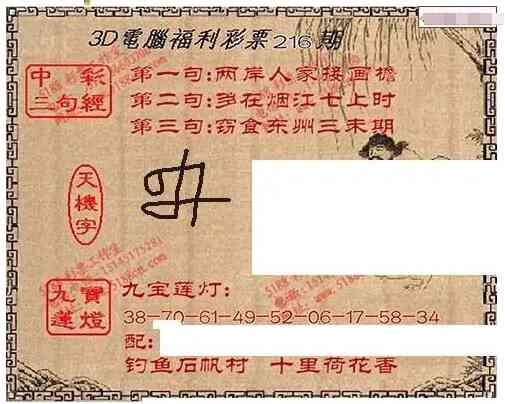 3D電腦福利彩票216期
中彩
三句經
第一句:两岸人家接画檐
第二句:多在烟江七上时
第三句:窃食东州三未期
天機字
九寶
蓮燈
九宝莲灯:
38-70-61-49-52-06-17-58-34
配:
钓鱼石帆村 十里荷花香